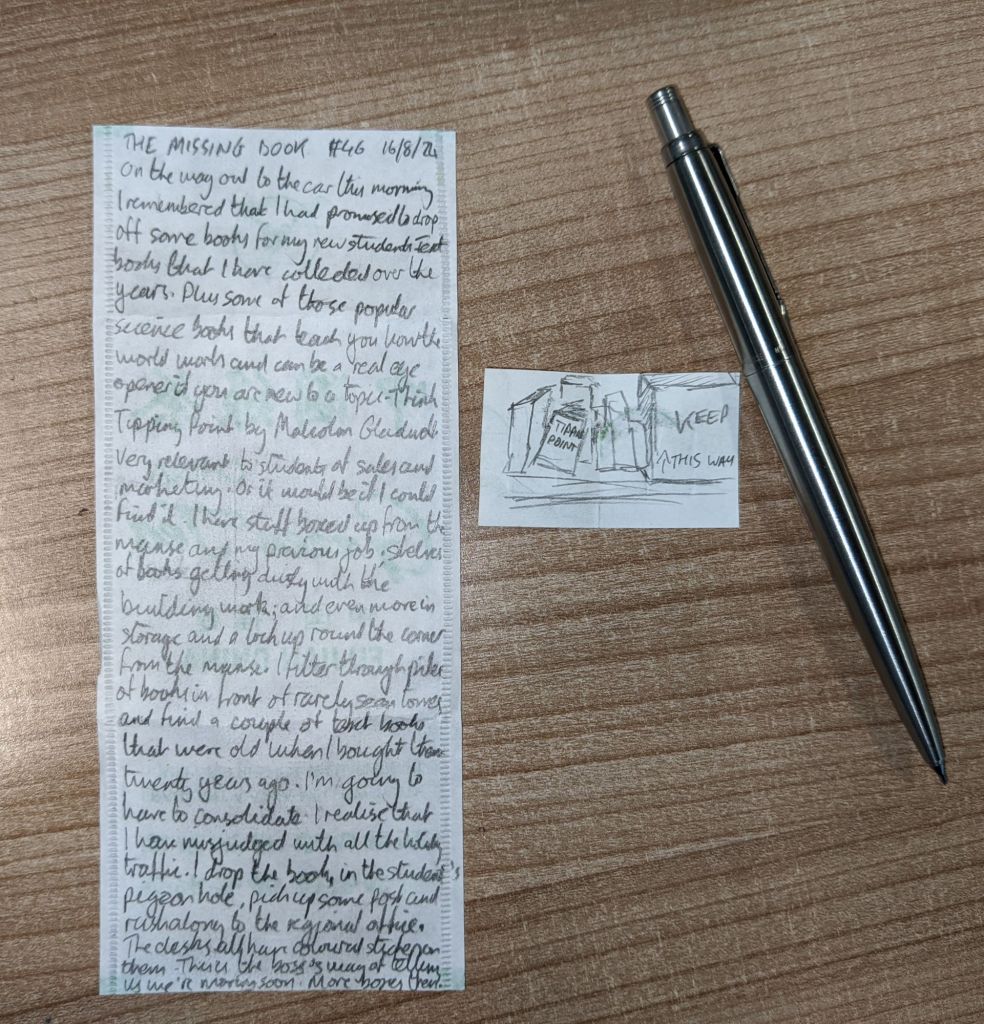 THE MISSING BOOK #46 16/8/24
On the way out to the car this morning
I remembered that I had promised to drop
off some books for my new students. Text
books that I have collected over the
years. Plus some of those popular
science books that teach you how the
world works and can be a real eye
opener if you are new to a topic. Think
Tipping Point by Malcolm Gladwell.
Very relevant to students of sales and
marketing. Or it would be if I could
find it. I have stuff boxed up from the
manse and my previous job, shelves
of books getting dusty with the
building work; and even more in
storage and a lock up round the corner
from the manse. I filter through piles
of books in front of rarely seen tomes
and find a couple of text books
that were old when I bought them
twenty years ago. I'm going to
have to consolidate. I realise that
I have misjudged with all the holiday
traffic. I drop the books in the student's
pigeon hole, pick up some post and
rush along to the regional office.
The desks all have coloured stickers on
them. This is the boss's way of telling
us we're moving soon. More boxes then.
TIPPING
POINT
KEEP
THIS WAY